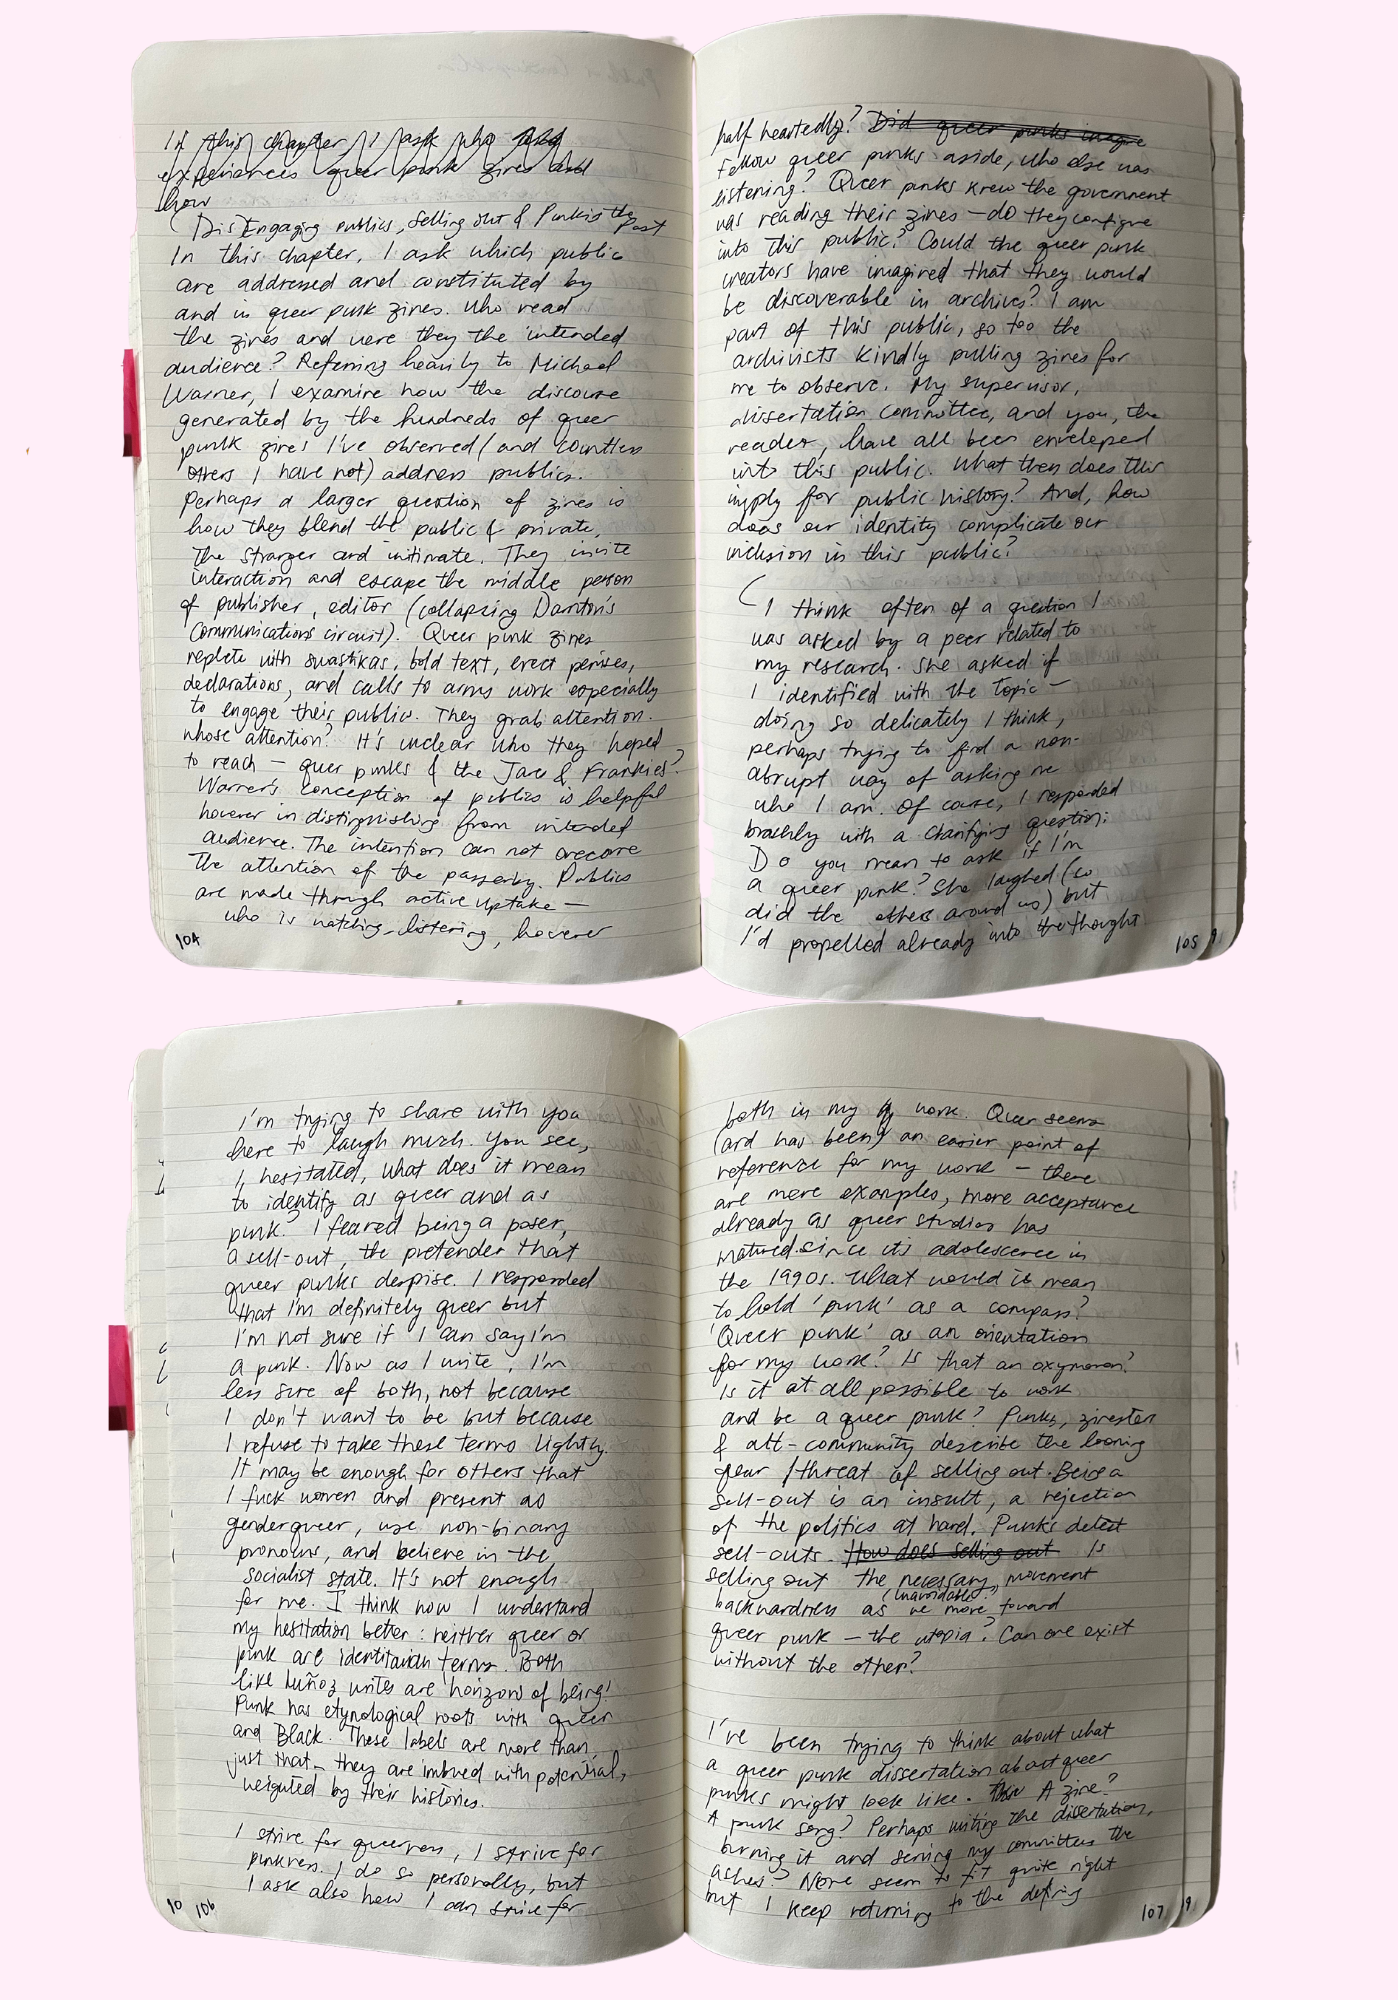 In this chapter I ask who
experiences queer punk zines and
how
(Dis)Engaging publics, Selling out & Punk is the Past
In this chapter, I ask which public
are addressed and constituted by
and in queer punk zines. Who read
the zines and were they the intended
audience? Referring heavily to Michael
Warner, I examine how the discourse
generated by the hundreds of queer
punk zines I've observed (and countless
others I have not) address publics.
Perhaps a larger question of zines is
how they blend the public & private,
the stranger and intimate. They invite
interaction and escape the middle person
of publisher, editor (collapsing Darnton's
Communications circuit). Queer punk zines
replete with swastikas, bold text, erect penises,
declarations, and calls to arms work especially
to engage their public. They grab attention.
whose attention? It's unclear who they hoped
to reach – queer punks & the Jacs & Frankies?
Warner's conception of publics is helpful
however in distinguishing from intended
audience. The intention can not overcome
the attention of the passerby. Publics
are made through active uptake –
who is watching, listening, however
104
half heartedly? Did queer punks imagine
Fellow queer punks aside, who else was
listening? Queer punks knew the government
was reading their zines – do they configure
into this public? Could the queer punk
creators have imagined that they would
be discoverable in archives? I am
part of this public, so too the
archivists kindly pulling zines for
me to observe. My supervisor,
dissertation committee, and you, the
reader, have all been enveloped
into this public. What then does this
imply for public history? And, how
does our identity complicate our
inclusion in this public?
I think often of a question I
was asked by a peer related to
my research. She asked if
I identified with the topic –
doing so delicately I think,
perhaps trying to find a non-
abrupt way of asking me
who I am. Of course, I responded
brashly with a clarifying question:
Do you mean to ask if I'm
a queer punk? She laughed (so
did the others around us) but
I'd propelled already into the thought
105
I'm trying to share with you
here to laugh much. You see,
I, hesitated, what does it mean
to identify as queer and as
punk? I feared being a poser,
a sell-out, the pretender that
queer punks despise. I responded
that I'm definitely queer but
I'm not sure if I can say I'm
a punk. Now as I write, I'm
less sure of both, not because
I don't want to be but because
I refuse to take these terms lightly.
It may be enough for others that
I fuck women and present as
genderqueer, use non-binary
pronouns, and believe in the
socialist state. It's not enough
for me. I think now I understand
my hesitation better: neither queer or
punk are identitarian terms. Both
like Muñoz writes are 'horizons of being'.
Punk has etynological roots with queer
and Black. These labels are more than
just that – they are imbued with potential,
weighted by their histories.
I strive for queerness, I strive for
punkness. I do so personally, but
I ask also how I can strive for
10 106
both in my work. Queer seems
(and has been) an easier point of
reference for my work – there
are more examples, more acceptance
already as queer studies has
matured since its adolescence in
the 1990s. What would it mean
to hold 'punk' as a compass?
'Queer punk' as an orientation
for my work? Is that an oxymoron?
Is it at all possible to work
and be a queer punk? Punks, zinesters
& alt-community describe the looming
fear/threat of selling out. Being a
sell-out is an insult, a rejection
of the politics at hand. Punks detest
sell-outs. How does selling out Is
selling out the necessary, movement
(unavoidable?)
backwardness as we move toward
queer punk – the utopia? Can one exist
without the other?
I've been trying to think about what
a queer punk dissertation about queer
punks might look like. A zine?
A punk song? Perhaps writing the dissertation,
burning it and serving my committee the
ashes? None seem to fit quite right
but I keep returning to the defining
107